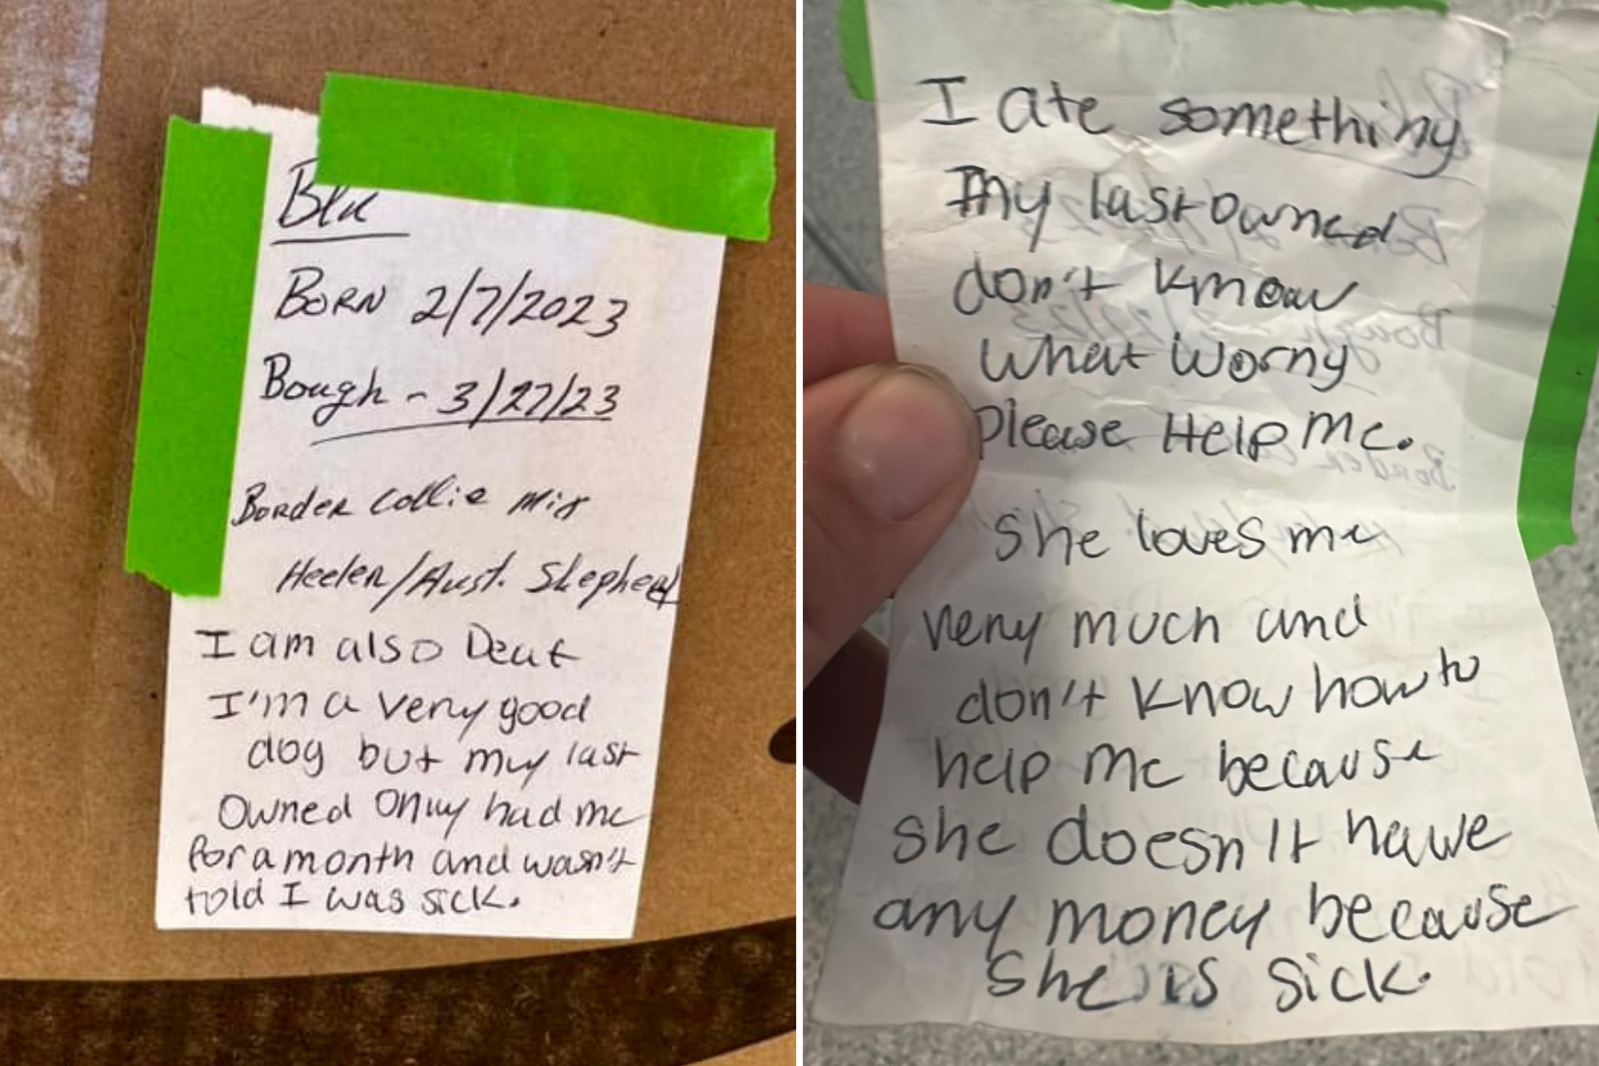 Blu
Born 2/7/2023
Bough - 3/27/23
Border Collie Mix
Heeler/Aust. Shepherd
I am also Deaf
I'm a very good
dog but my last
owned only had me
for a month and wasn't
told I was sick.
I ate something
my last owned
don't know
what worry
please Help Me.
she loves me
very much and
don't know how to
help me because
she doesn't have
any money because
she is sick.